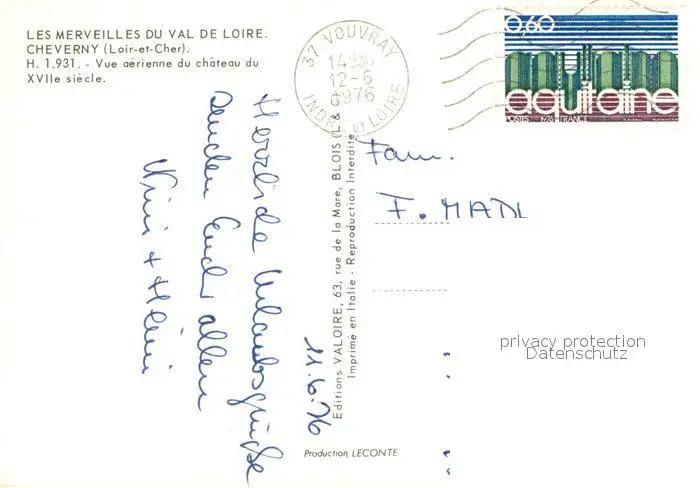 LES MERVEILLES DU VAL DE LOIRE.
CHEVERNY (Loir-et-Cher).
H. 1.931. - Vue aérienne du château du
XVIIe siècle.
37 VOUVRAY
12-6
1976
INDRE ET LOIRE
0,60
aquitaine
POSTES 1976 FRANCE
11.6.76
Herrliche Urlaubsgrüße
senden Euch allen
Nini + Heini
Editions VALOIRE, 63, rue de la Mare, BLOIS (L &
Imprimé en Italie - Reproduction Interdite
Fam.
F. MADL
privacy protection
Datenschutz
Production LECONTE